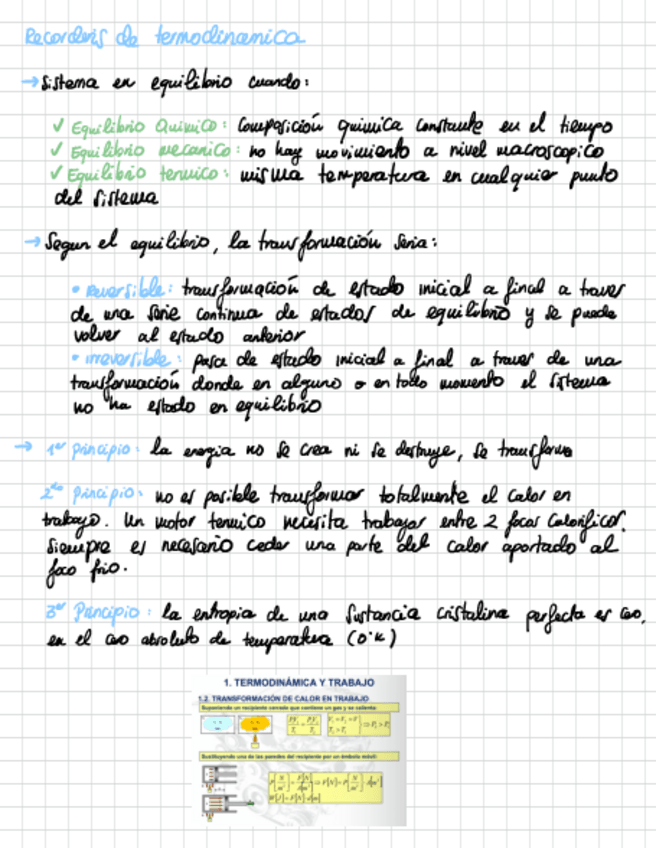 Recorderis de termodinamica
→ Sistema en equilibrio cuando:
✓ Equilibrio Quimico: composición quimica constante en el tiempo
✓ Equilibrio mecanico: no hay movimiento a nivel macroscopico
✓ Equilibrio termico: misma temperatura en cualquier punto
del sistema
→ Segun el equilibrio, la transformación seria:
• reversible: transformación de estado inicial a final a traves
de una serie continua de estados de equilibrio y se puede
volver al estado anterior
• irreversible: pasa de estado inicial a final a traves de una
transformación donde en alguno o en todo momento el sistema
no ha estado en equilibrio
→ 1er principio: la energia no se crea ni se destruye, se transforma
2do principio: no es posible transformar totalmente el calor en
trabajo. Un motor termico necesita trabajar entre 2 focos calorificos.
Siempre es necesario ceder una parte del calor aportado al
foco frio.
3er Principio: la entropia de una sustancia cristalina perfecta es cero,
en el cero absoluto de temperatura (0°K)
1. TERMODINÁMICA Y TRABAJO
1.2. TRANSFORMACIÓN DE CALOR EN TRABAJO
Suponiendo un recipiente cerrado que contiene un gas y se calienta:
Sustituyendo una de las paredes del recipiente por un émbolo móvil: